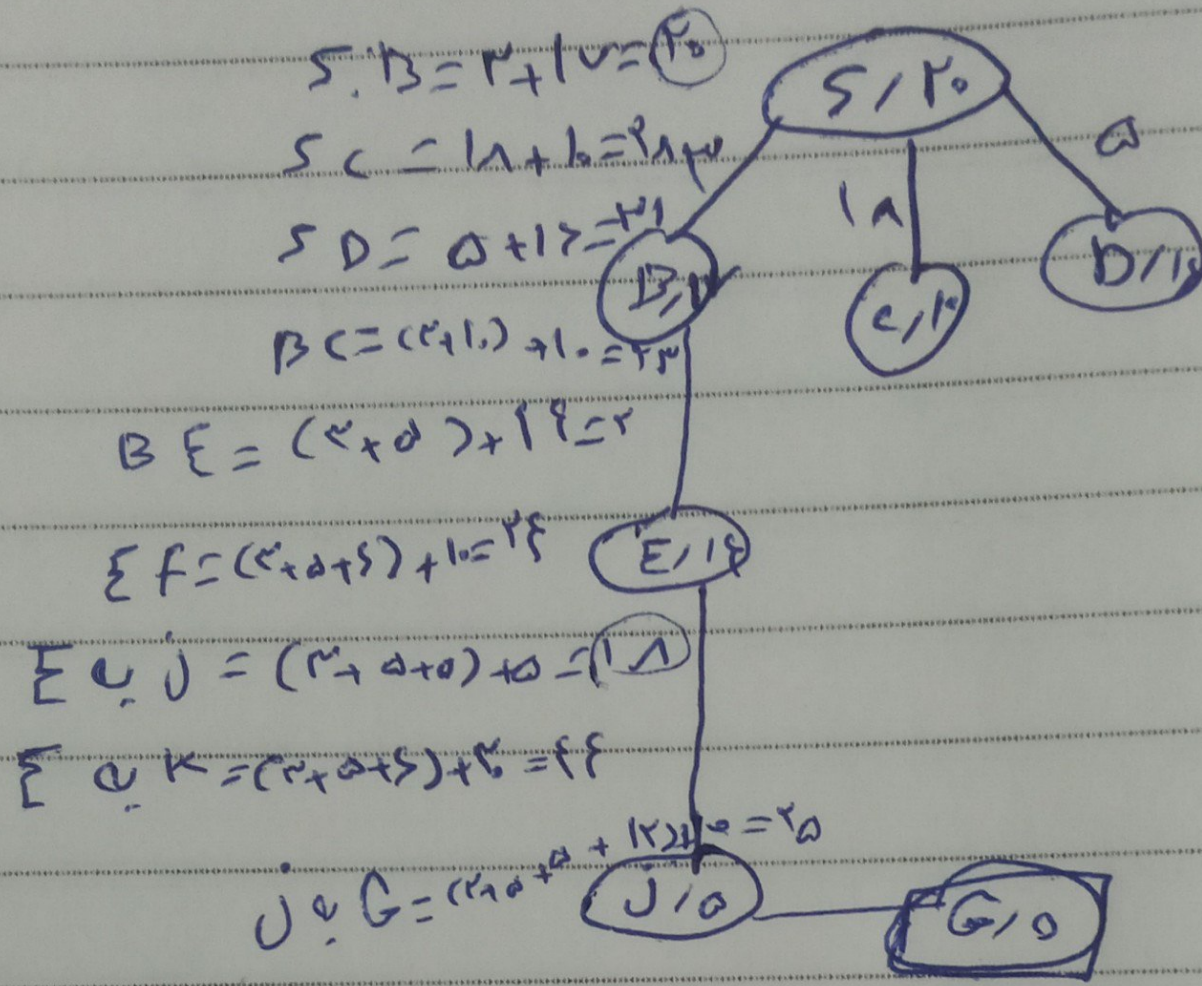 S.B=۳+۱۷=۲۰
SC=۱۸+۱۰=۲۸
SD=۵+۱۶=۲۱
BC=(۳+۱۰)+۱۰=۲۳
BE=(۳+۵)+۱۴=۲
EF=(۳+۵+۶)+۱۰=۲۴
E به J=(۳+۵+۵)+۵=۱۸
E به K=(۳+۵+۶)+۳۰=۴۴
J به G=(۳+۵+۵+۱۲)+۰=۲۵
S/۲۰
۳
۱۸
۵
B/۱۷
D/۱۶
E/۱۴
J/۵
G/۰